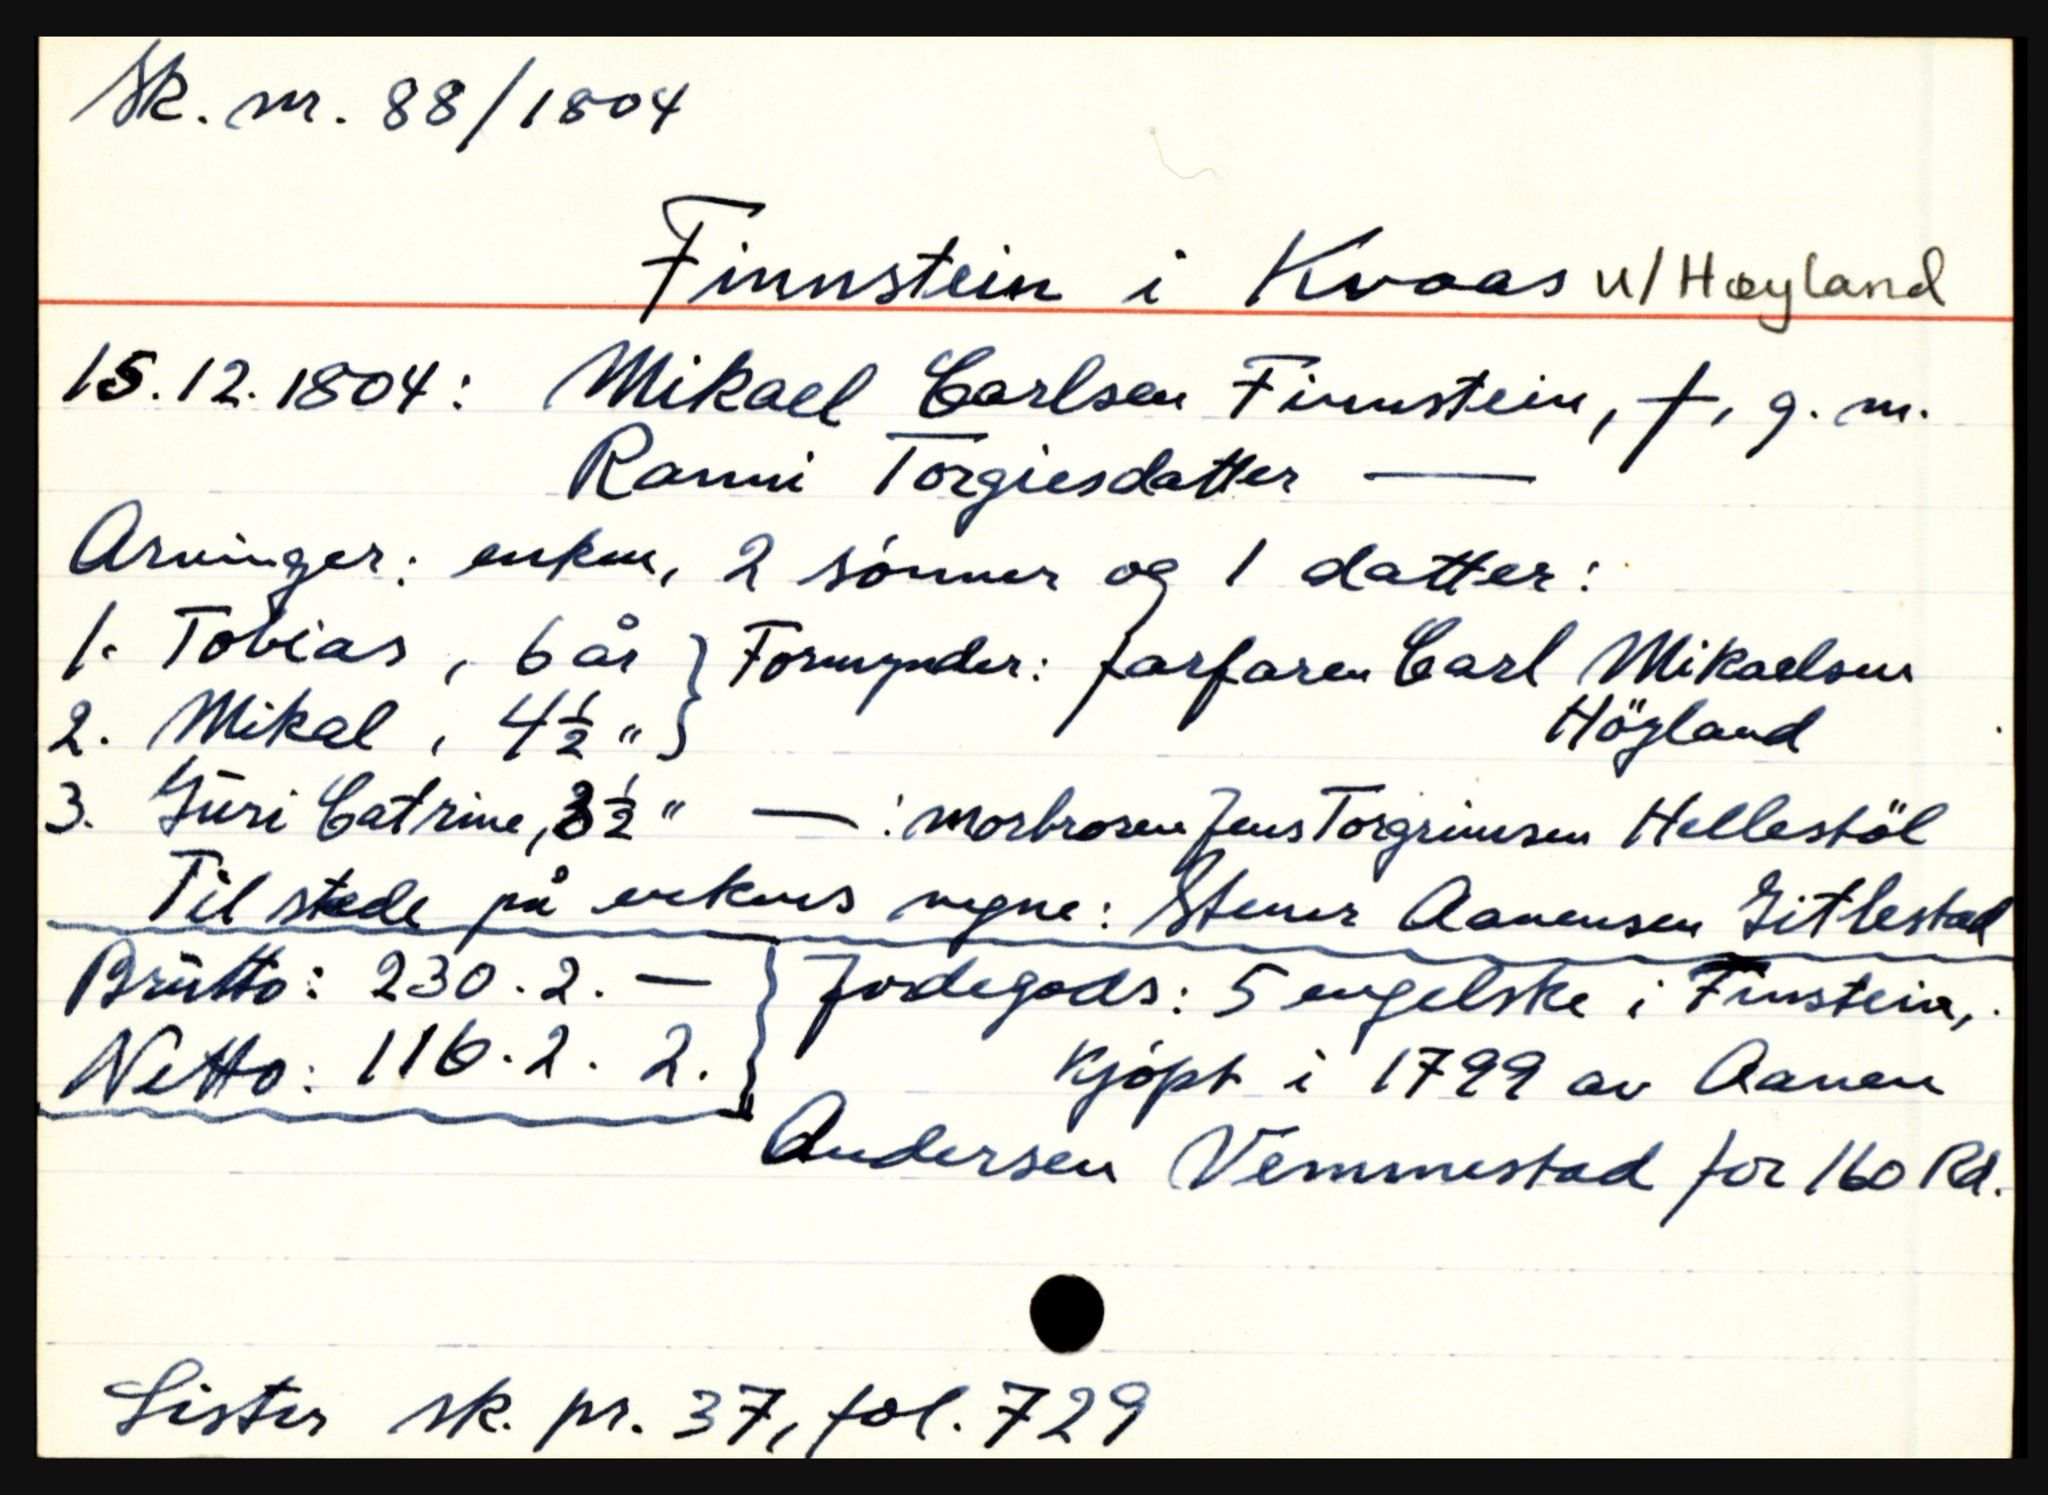 Sk. nr. 88/1804
Finnstein i Kvaas u/Høyland
15.12.1804: Mikael Carlsen Finnstein, †, g. m.
Ranni Torgiesdatter —
Arvinger: enken, 2 sønner og 1 datter:
1. Tobias, 6 år } Formynder: farfaren Carl Mikaelsen
2. Mikal, 4½ " } Höyland
3. Gŭri Catrine, 3½ " — : morbroren Jens Torgrimsen Hellestöl
Til stede på enkens vegne: Stener Aanensen Gitlestad
Brŭtto: 230. 2. — } Jordegods: 5 engelske i Finstein,
Netto: 116. 2. 2. } kjøpt i 1799 av Aanen
Andersen Vemmestad for 160 Rd.
Lister sk. pr. 37, fol. 729